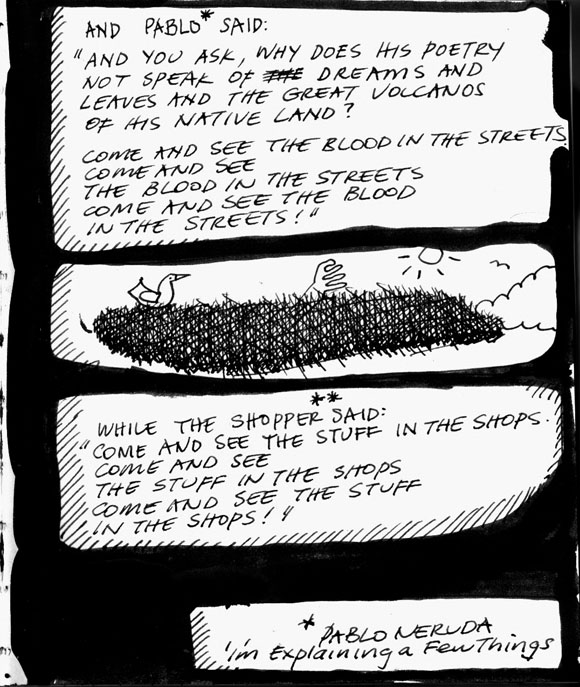 AND PABLO* SAID:
"AND YOU ASK, WHY DOES HIS POETRY
NOT SPEAK OF THE DREAMS AND
LEAVES AND THE GREAT VOLCANOS
OF HIS NATIVE LAND?
COME AND SEE THE BLOOD IN THE STREETS.
COME AND SEE
THE BLOOD IN THE STREETS
COME AND SEE THE BLOOD
IN THE STREETS!"
**
WHILE THE SHOPPER SAID:
"COME AND SEE THE STUFF IN THE SHOPS.
COME AND SEE
THE STUFF IN THE SHOPS
COME AND SEE THE STUFF
IN THE SHOPS!"
* PABLO NERUDA
'I'm Explaining a Few Things